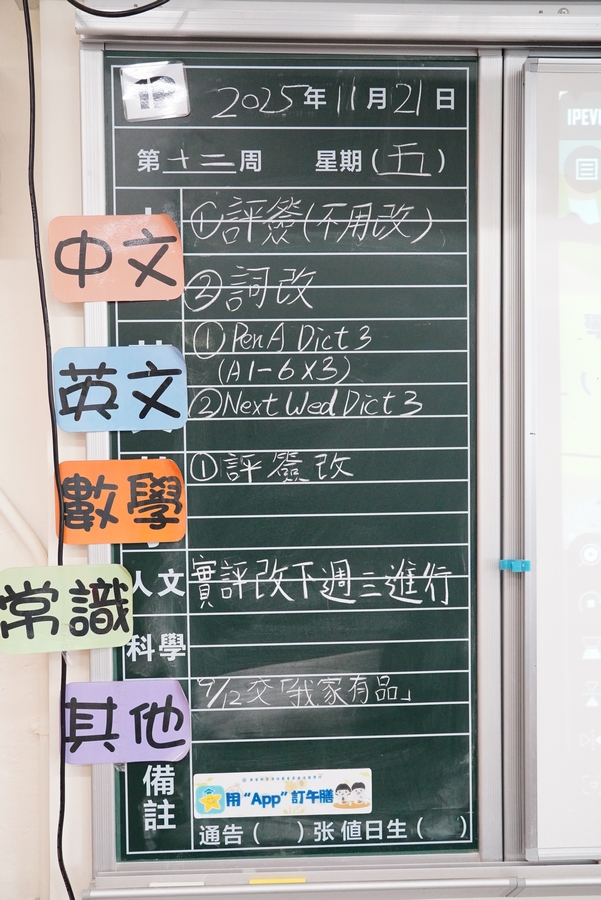 2025年11月21日
第十二周 星期(五)
中文
①評簽(不用改)
②詞改
英文
①Pen A Dict 3
(A1-6 X3)
②Next Wed Dict 3
數學
①評簽改
常識
人文 實評改下週三進行
科學
其他
9/12交「我家有品」
備註
用“App”訂午膳
通告( )张 值日生( )
IPEV